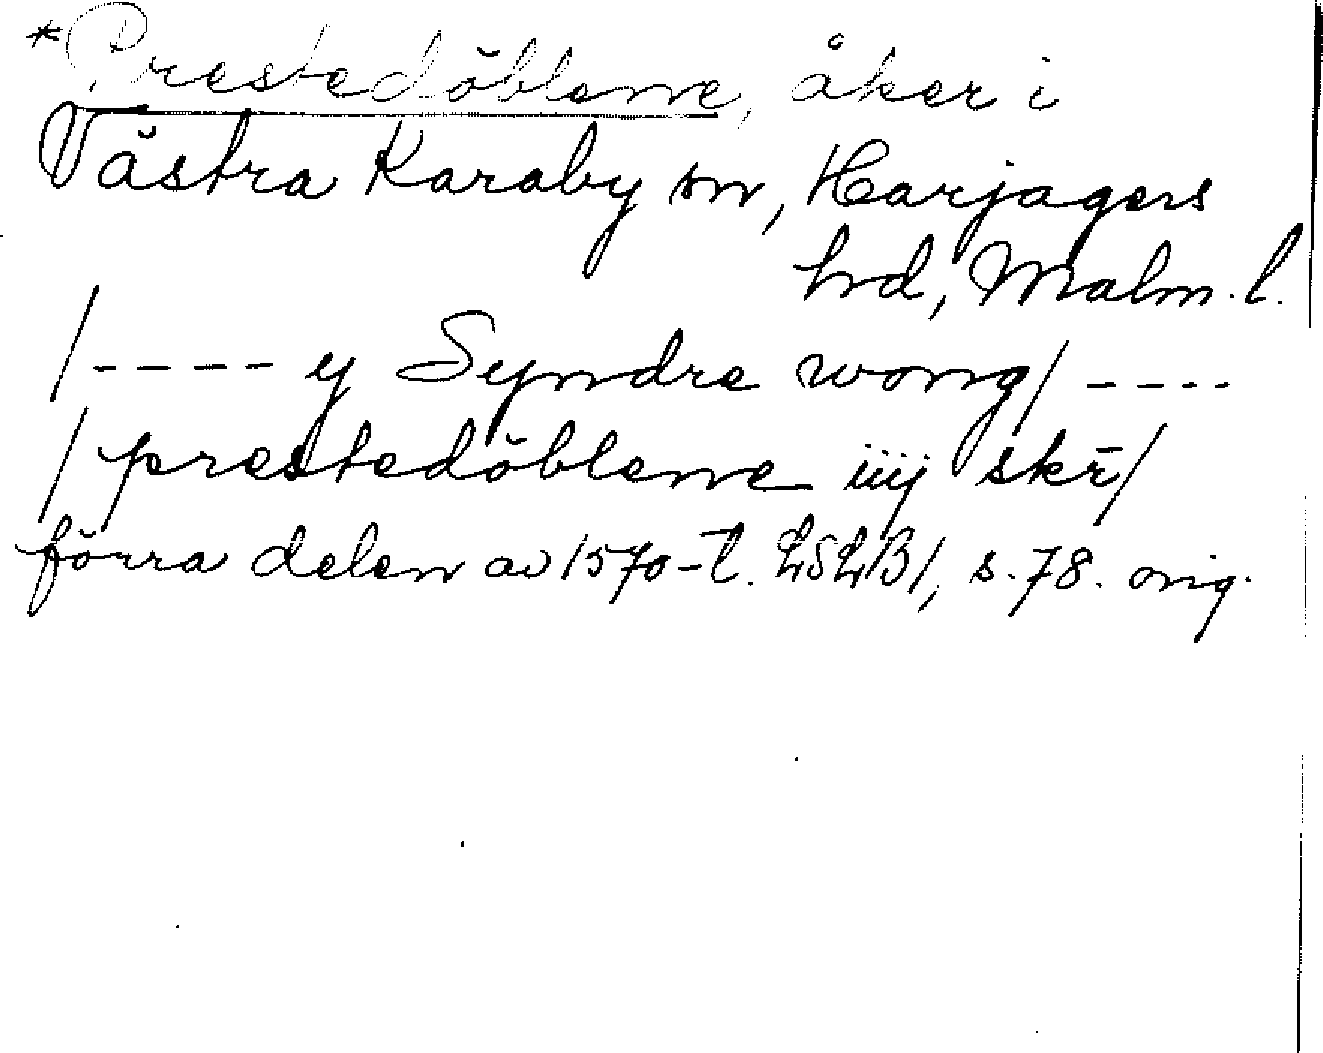 *Prestedöblene, åker i
Västra Karaby sn, Harjagers
hrd, Malm. l.
/---- y Syndre wong/ ----
/ prestedöblene iiij skr̄/
förra delen av 1570-t. LSLB1, s. 78. orig.